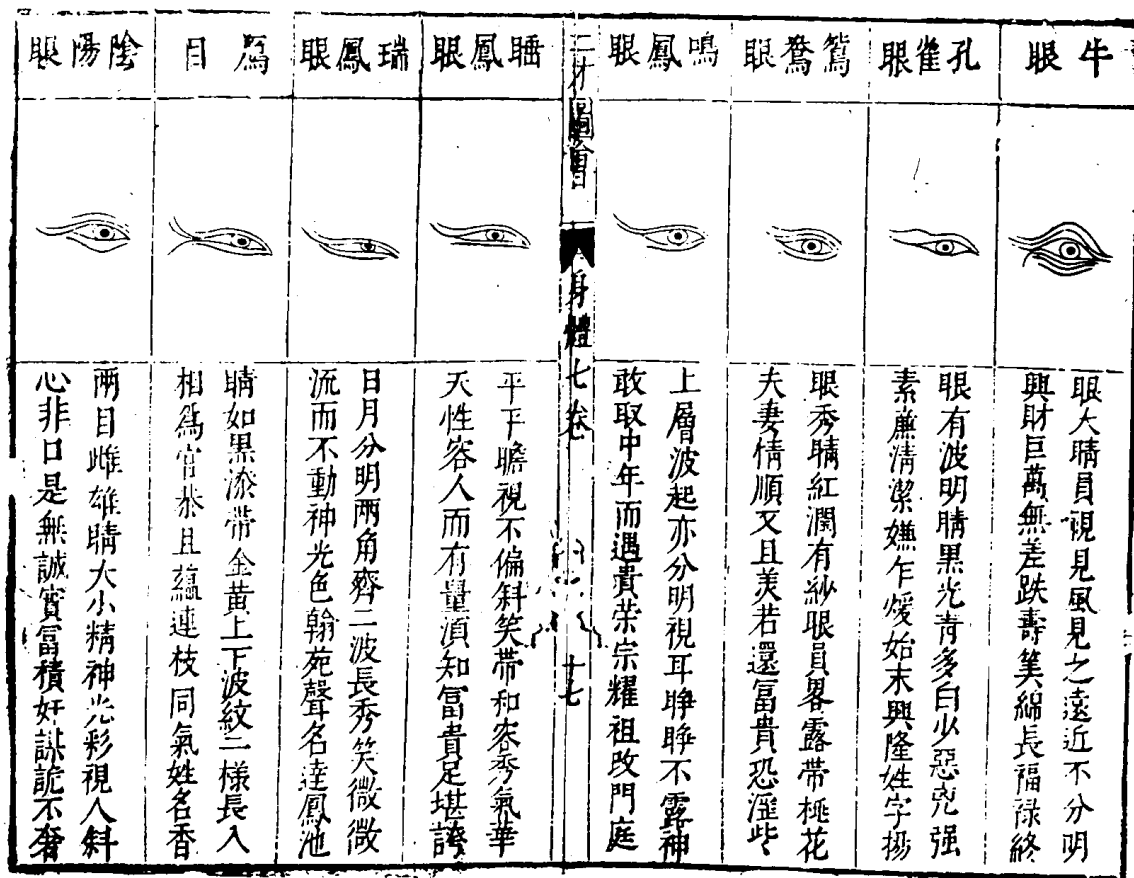 牛眼
眼大睛員視見風見之遠近不分明
興財巨萬無差跌壽筭綿長福祿終
孔雀眼
眼有波明睛黑光青多白少惡兇强
素廉清潔嫌乍煖始末興隆姓字揚
鴛鴦眼
眼秀睛紅潤有紗眼員畧露帶桃花
夫妻情順又且美若還富貴恐淫些
鳴鳳眼
上層波起亦分明視耳睜睜不露神
敢取中年而遇貴荣宗耀祖改門庭
三才圖會
身體七卷
十七
睡鳳眼
平平瞻視不偏斜笑帶和容秀氣華
天性容人而有量須知冨貴足堪誇
瑞鳳眼
日月分明兩角齊二波長秀笑微微
流而不動神光色翰苑聲名達鳳池
鴈目
睛如黑漆帶金黃上下波紋一樣長入
相爲官恭且蘊連枝同氣姓名香
陰陽眼
兩目雌雄睛大小精神光彩視人斜
心非口是無誠實冨積奸謀詭不奢